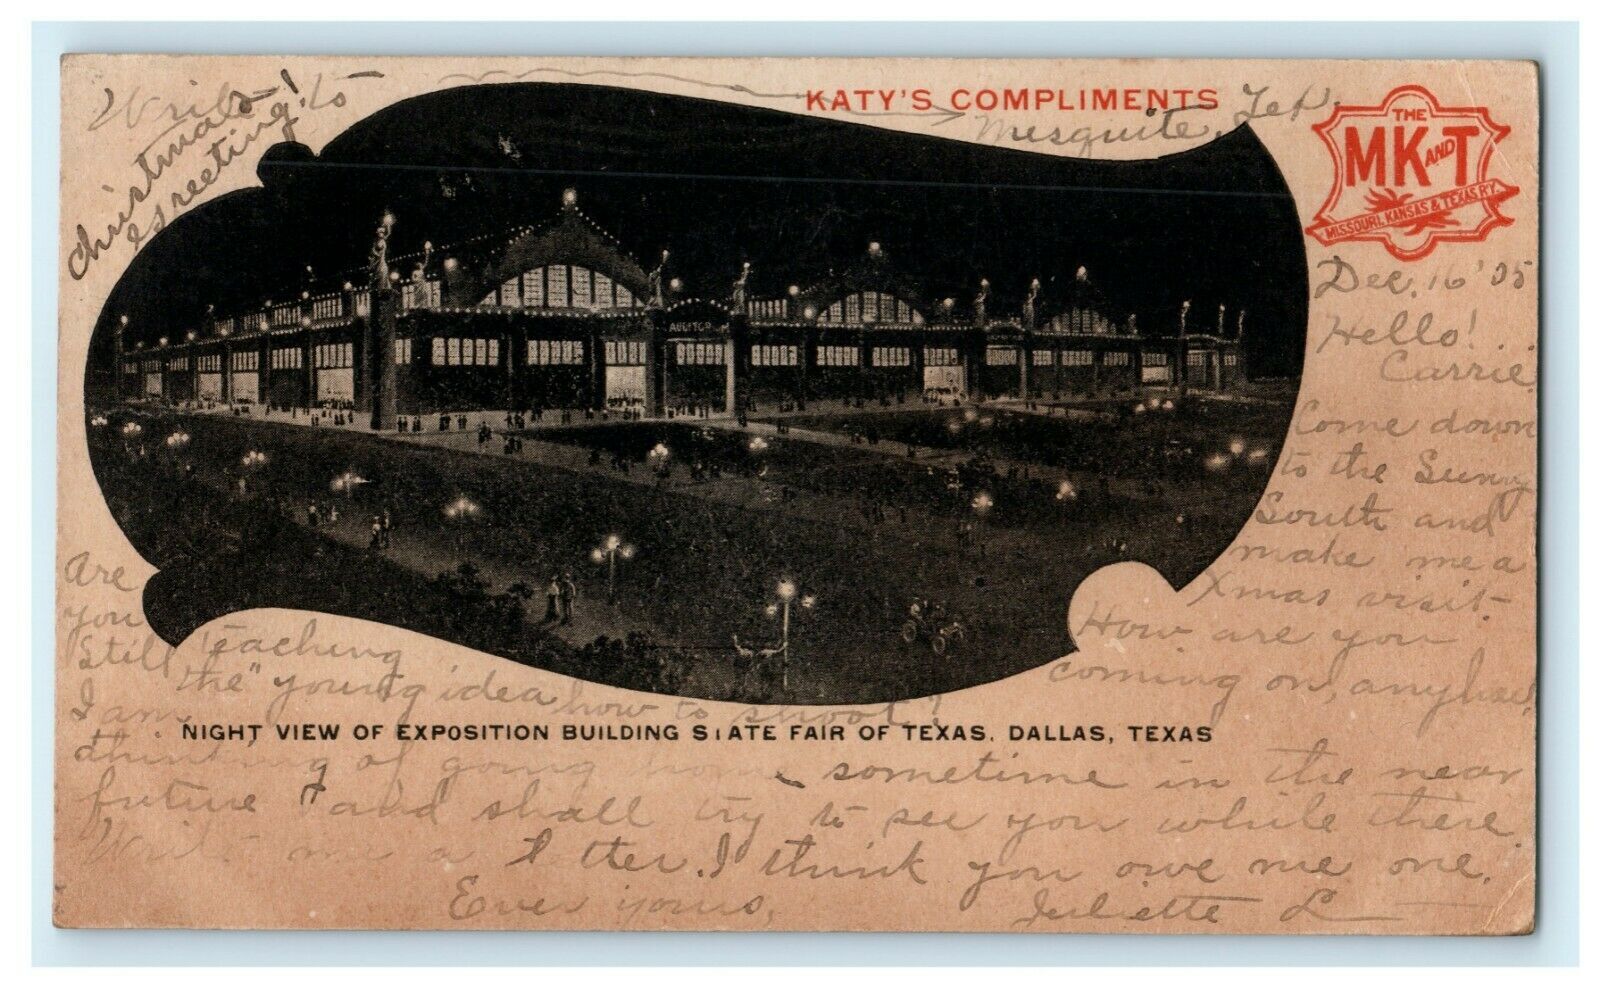 KATY'S COMPLIMENTS
THE
MK AND T
MISSOURI, KANSAS & TEXAS R'Y.
Write to
Mesquite, Tex.
Christmas
greeting!
AUDITOR
Dec. 16 '05
Hello!
Carrie
Come down
to the Sunny
South and
make me a
Xmas visit.
How are you
coming on, anyhow,
Are
you
Still teaching
the "young idea how to shoot!
I am
NIGHT VIEW OF EXPOSITION BUILDING STATE FAIR OF TEXAS. DALLAS, TEXAS
thinking of going home sometime in the near
future & and shall try to see you while there
Write me a letter. I think you owe me one.
Ever yours,
Juliette L